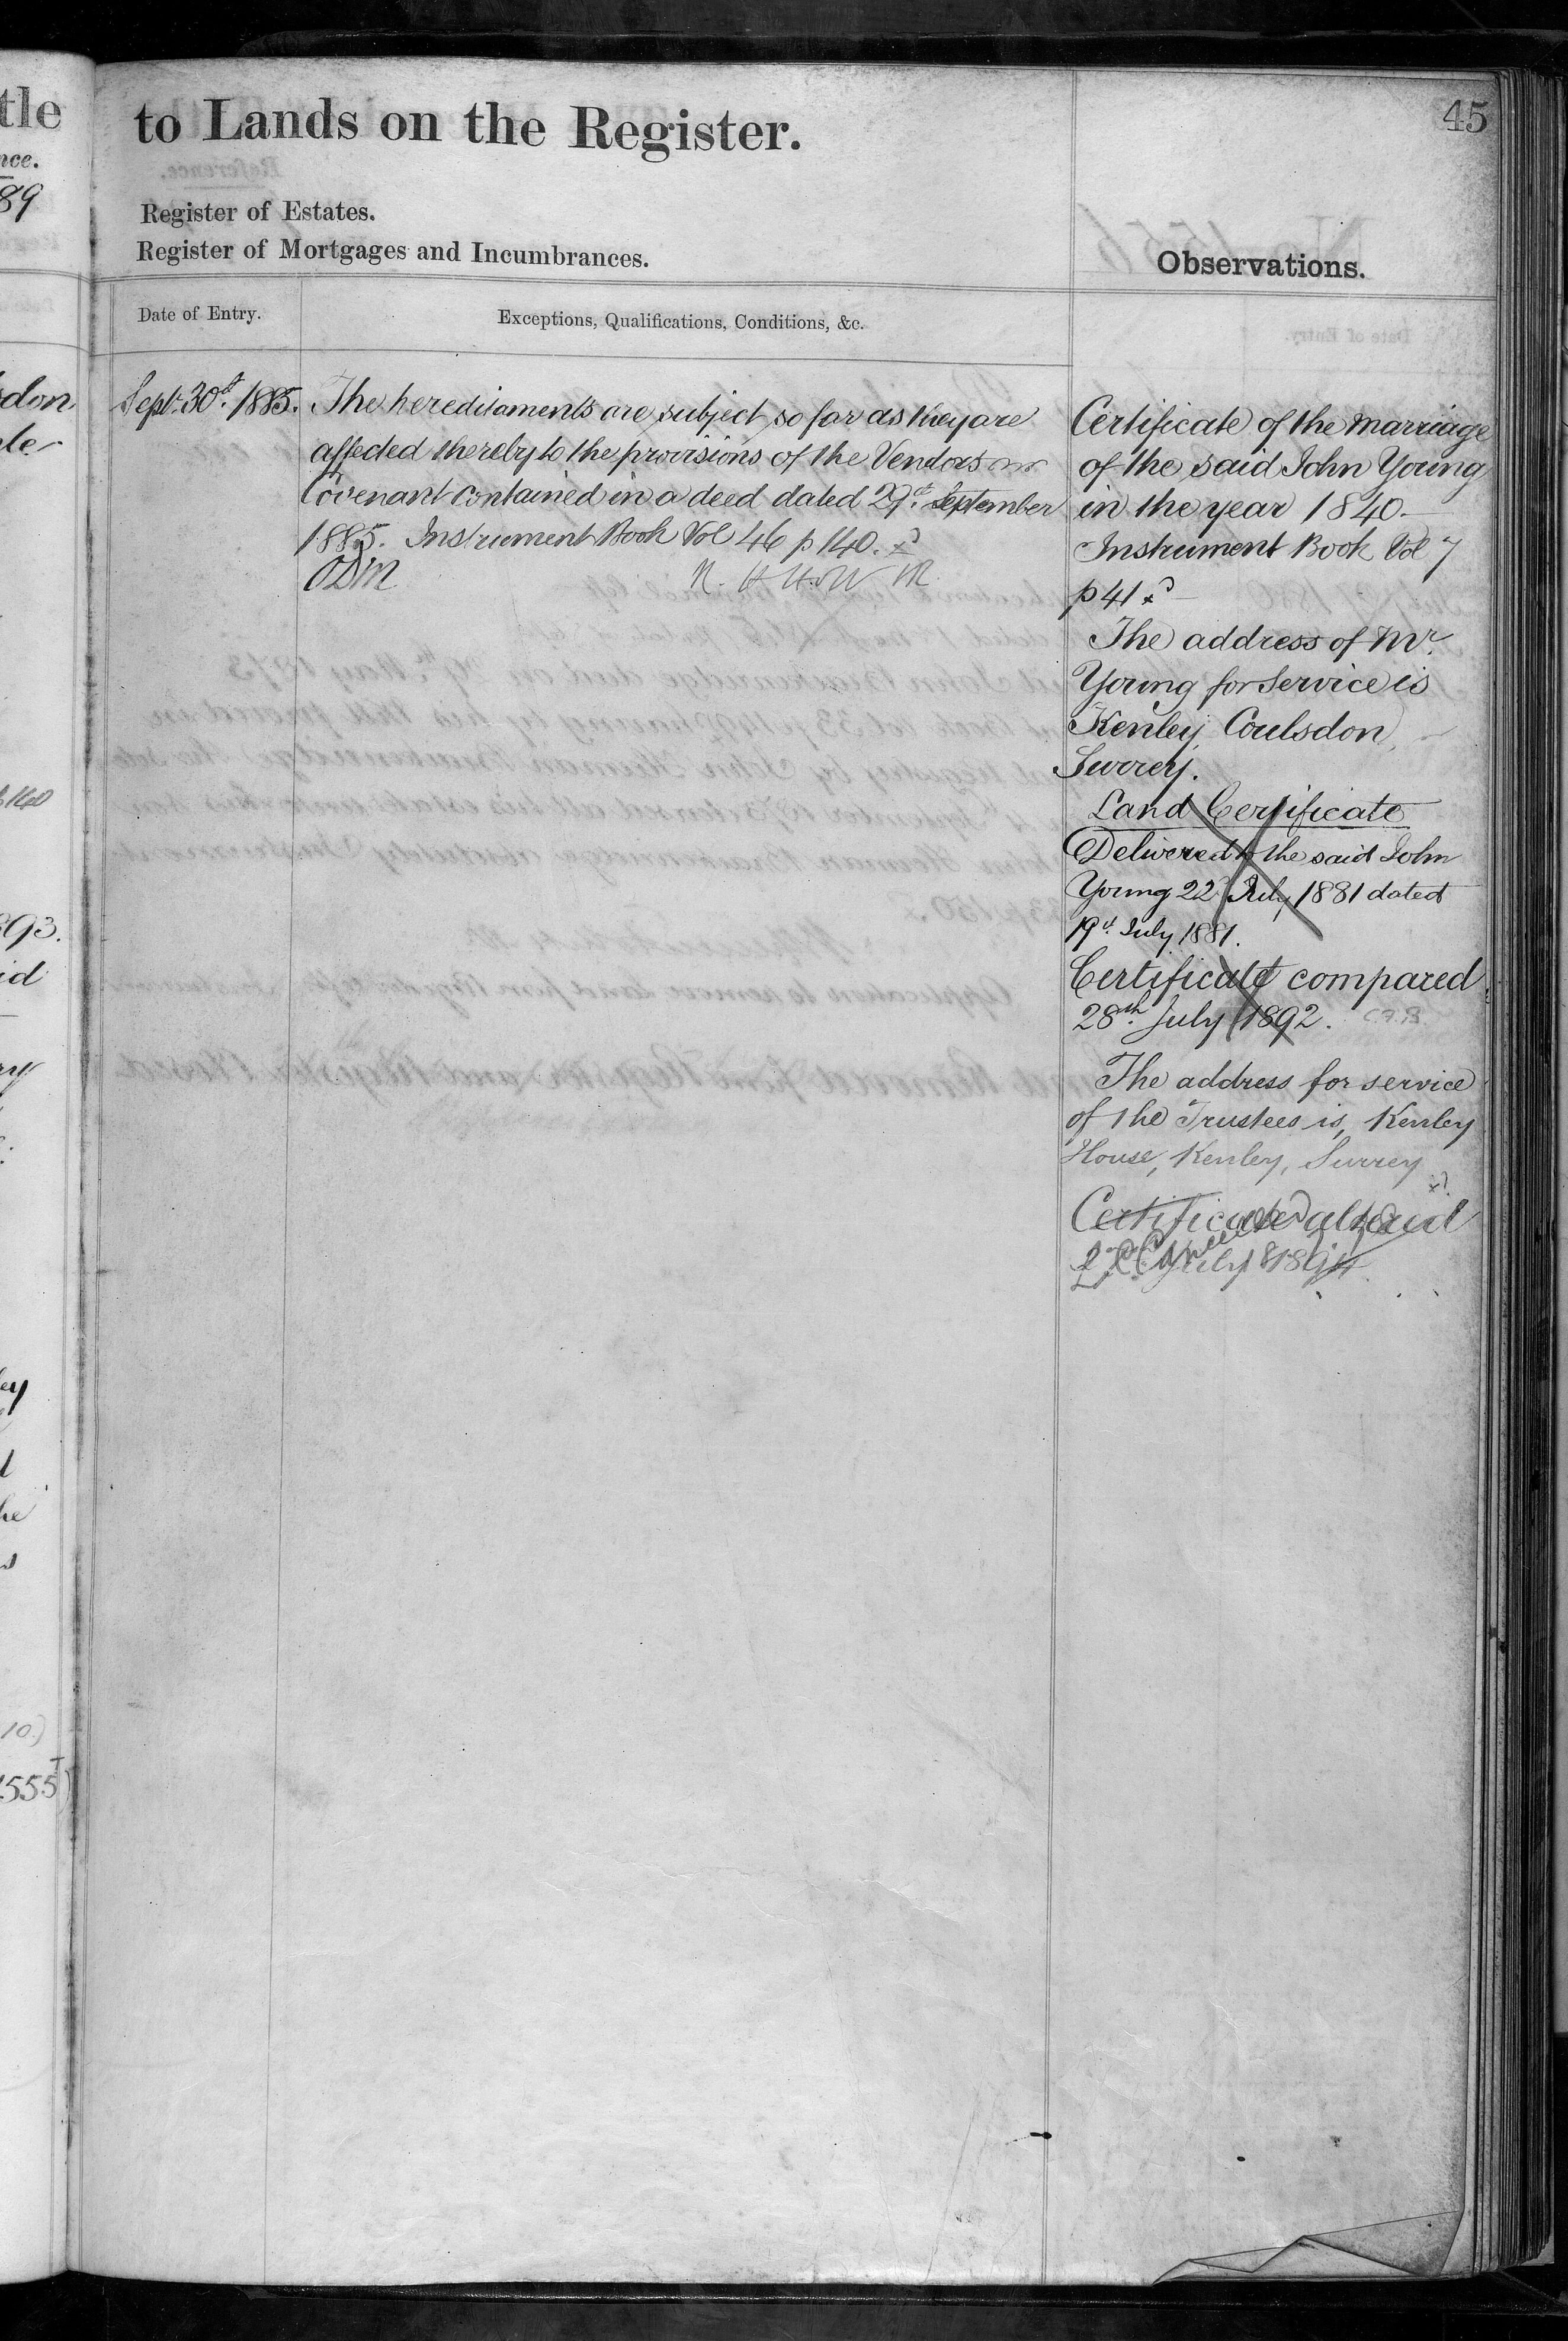 45
tle
nce.
89
to Lands on the Register.
Register of Estates.
Register of Mortgages and Incumbrances.
Observations.
Date of Entry.
Exceptions, Qualifications, Conditions, &c.
Sept. 30th 1885.
The hereditaments are subject so far as they are
affected thereby to the provisions of the Vendors
Covenant contained in a deed dated 29th September
1885. Instrument Book Vol 46 p 140.
ODM
Certificate of the marriage
of the said John Young
in the year 1840.
Instrument Book Vol 7
p 41
The address of Mr.
Young for service is
Kenley, Coulsdon,
Surrey.
Land Certificate
Delivered to the said John
Young 22d July 1881 dated
19th July 1881.
Certificate compared
28th July 1892. C.F.B.
The address for service
of the Trustees is, Kenley
House, Kenley, Surrey
Certificate altered
July 1894
don
p 140
893.
id
ry
ey
he
10.)
1555